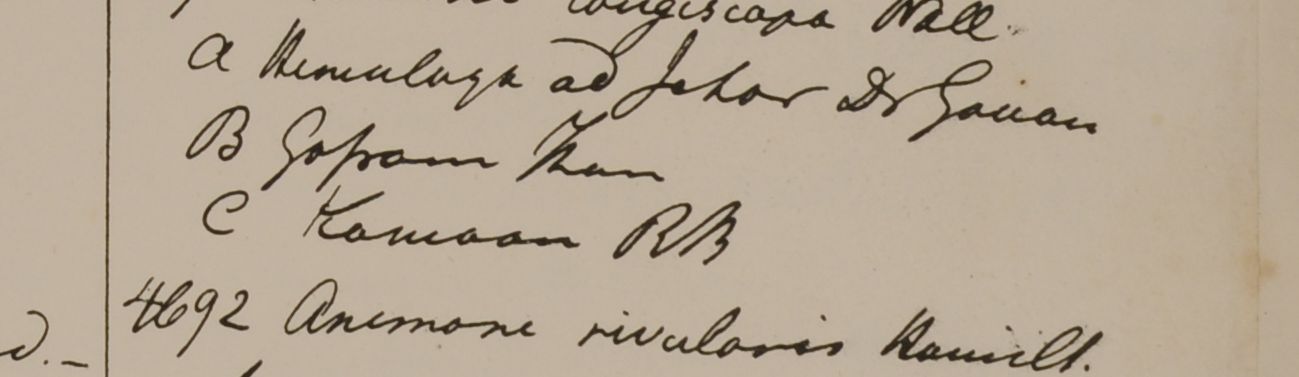 longiscapa Wall.
A Himalaya ad Jahor Dr Govan
B Gossam Than
C Kamaon RB
4692 Anemone rivularis Hamilt.
d.-